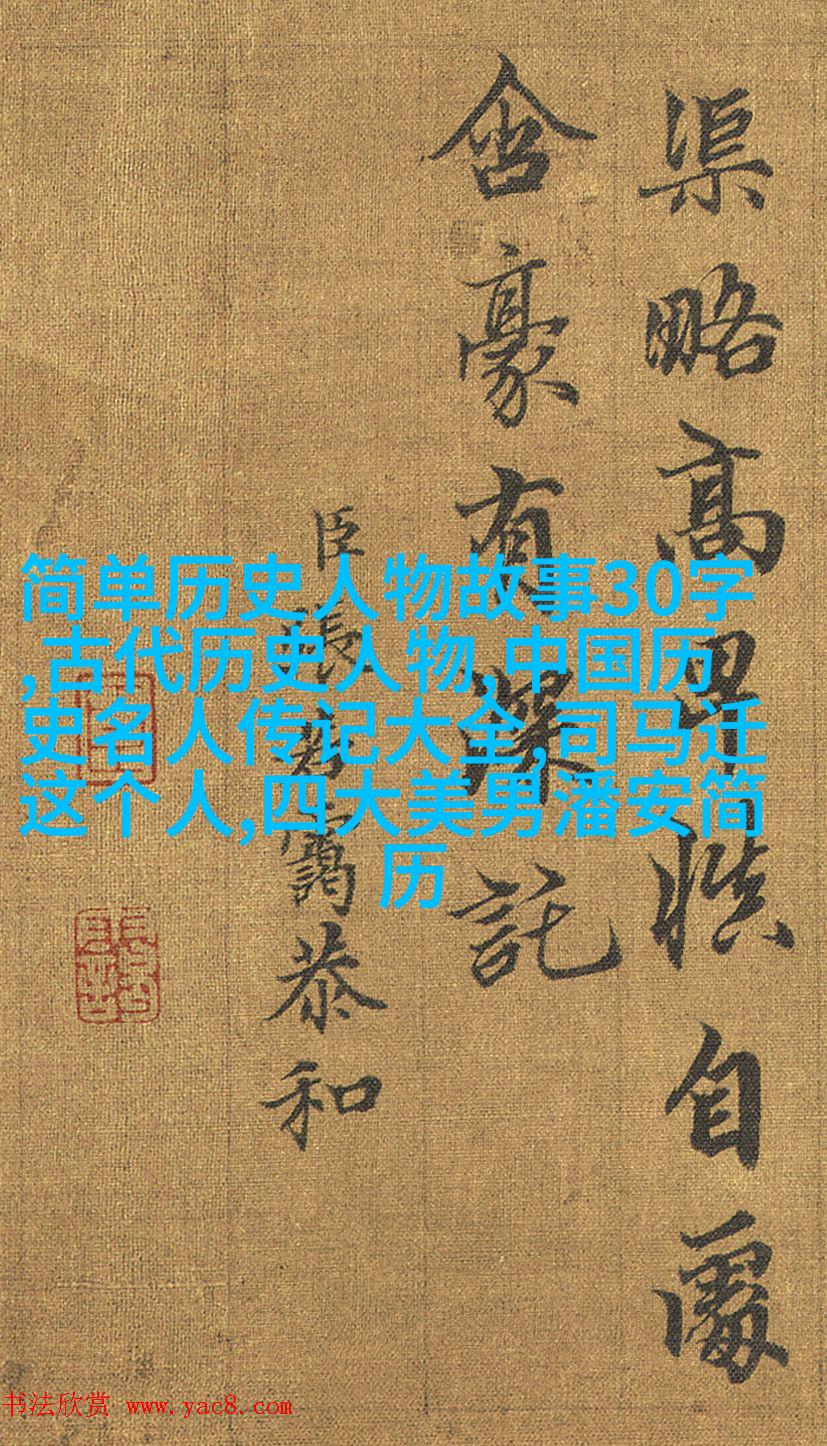 渠略高卑慎自處
含豪有深託
臣張若靄恭和
简单历史人物故事30字
,古代历史人物,中国历
史名人传记大全,司马迁
这个人,四大美男潘安简
历
书法欣赏 www.yac8.com